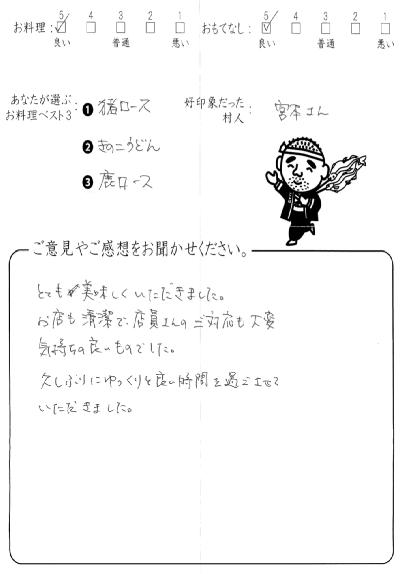 お料理： 5 4 3 2 1 おもてなし： 5 4 3 2 1
良い 普通 悪い 良い 普通 悪い
あなたが選ぶ
お料理ベスト3：
❶ 猪ロース
❷ きのこうどん
❸ 鹿ロース
好印象だった
村人：
宮本さん
ご意見やご感想をお聞かせください。
とても美味しくいただきました。
お店も清潔で、店員さんのご対応も大変
気持ちの良いものでした。
久しぶりにゆっくりと良い時間を過ごさせて
いただきました。